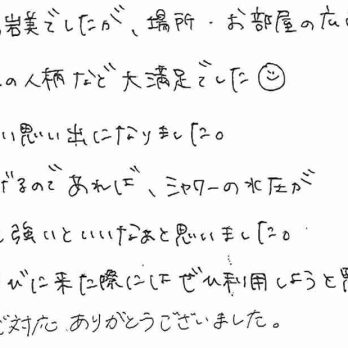 岩美でしたが、場所・お部屋の広
の人柄など大満足でした☺
い思い出になりました。
げるのであれば、シャワーの水圧が
強いといいなぁと思いました。
びに来た際にはぜひ利用しようと思
ご対応ありがとうございました。